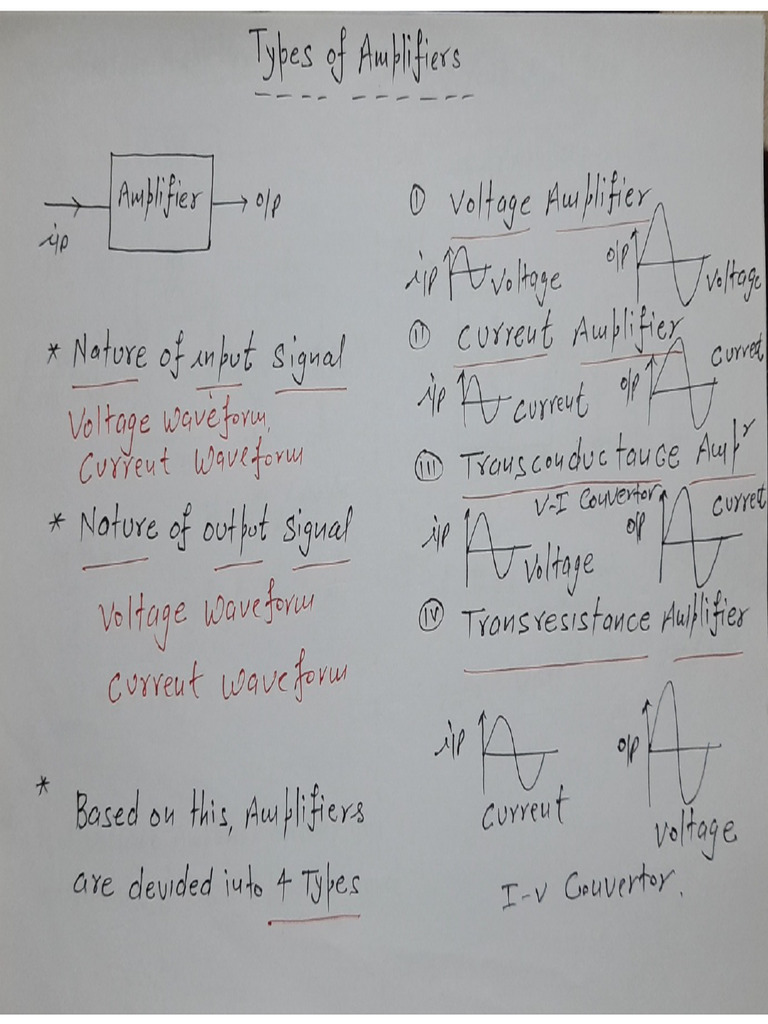 Types of Amplifiers
Amplifier
i/p
o/p
* Nature of input Signal
Voltage Waveform,
Current Waveform
* Nature of output Signal
Voltage Waveform
Current Waveform
* Based on this, Amplifiers
are devided into 4 Types
(i) Voltage Amplifier
i/p Voltage o/p Voltage
(ii) Current Amplifier
i/p Current o/p Curret
(iii) Transconductance Ampr
V-I Convertor
i/p Voltage o/p Curret
(iv) Transresistance Amplifier
i/p Current o/p Voltage
I-V Convertor.